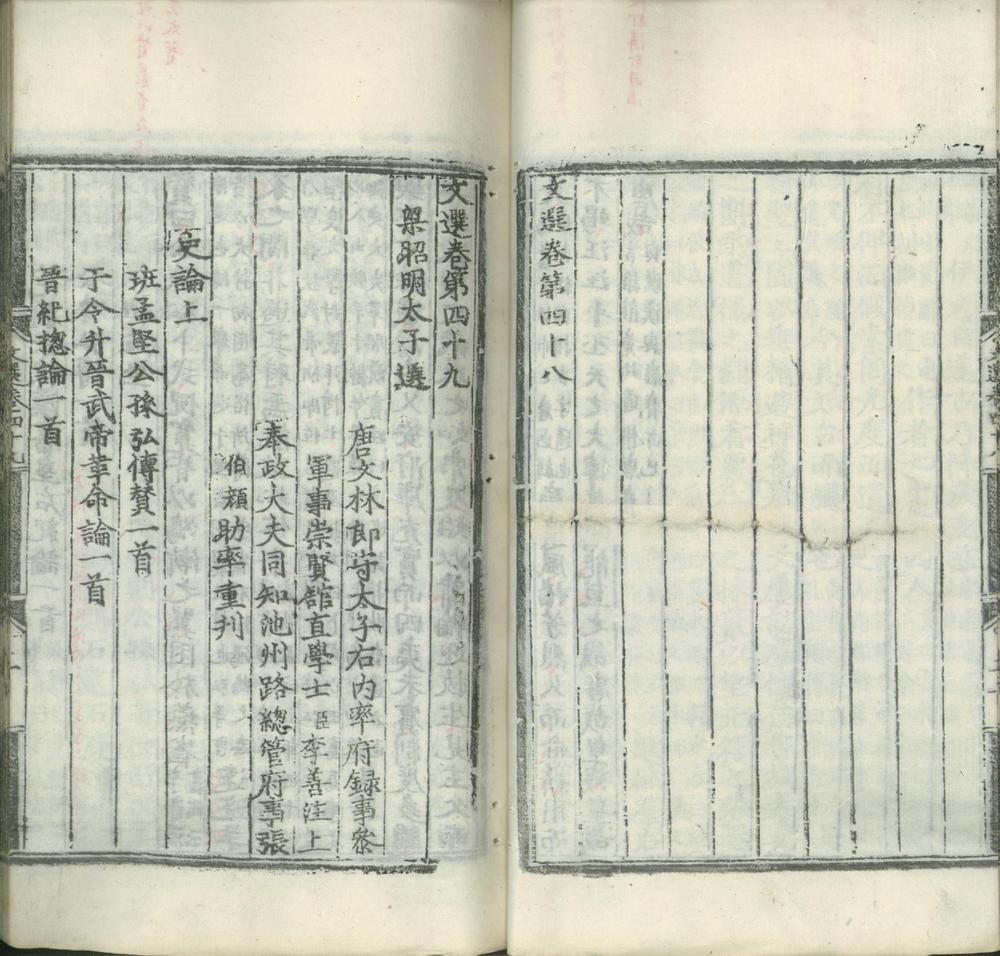 文選卷第四十八
文選卷第四十九
梁昭明太子選
唐文林郎守太子右內率府録事叅
軍事崇賢館直學士臣李善注上
奉政大夫同知池州路總管府事張
伯顔助率重刋
史論上
班孟堅公孫弘傳賛一首
于令升晉武帝革命論一首
晉紀揔論一首